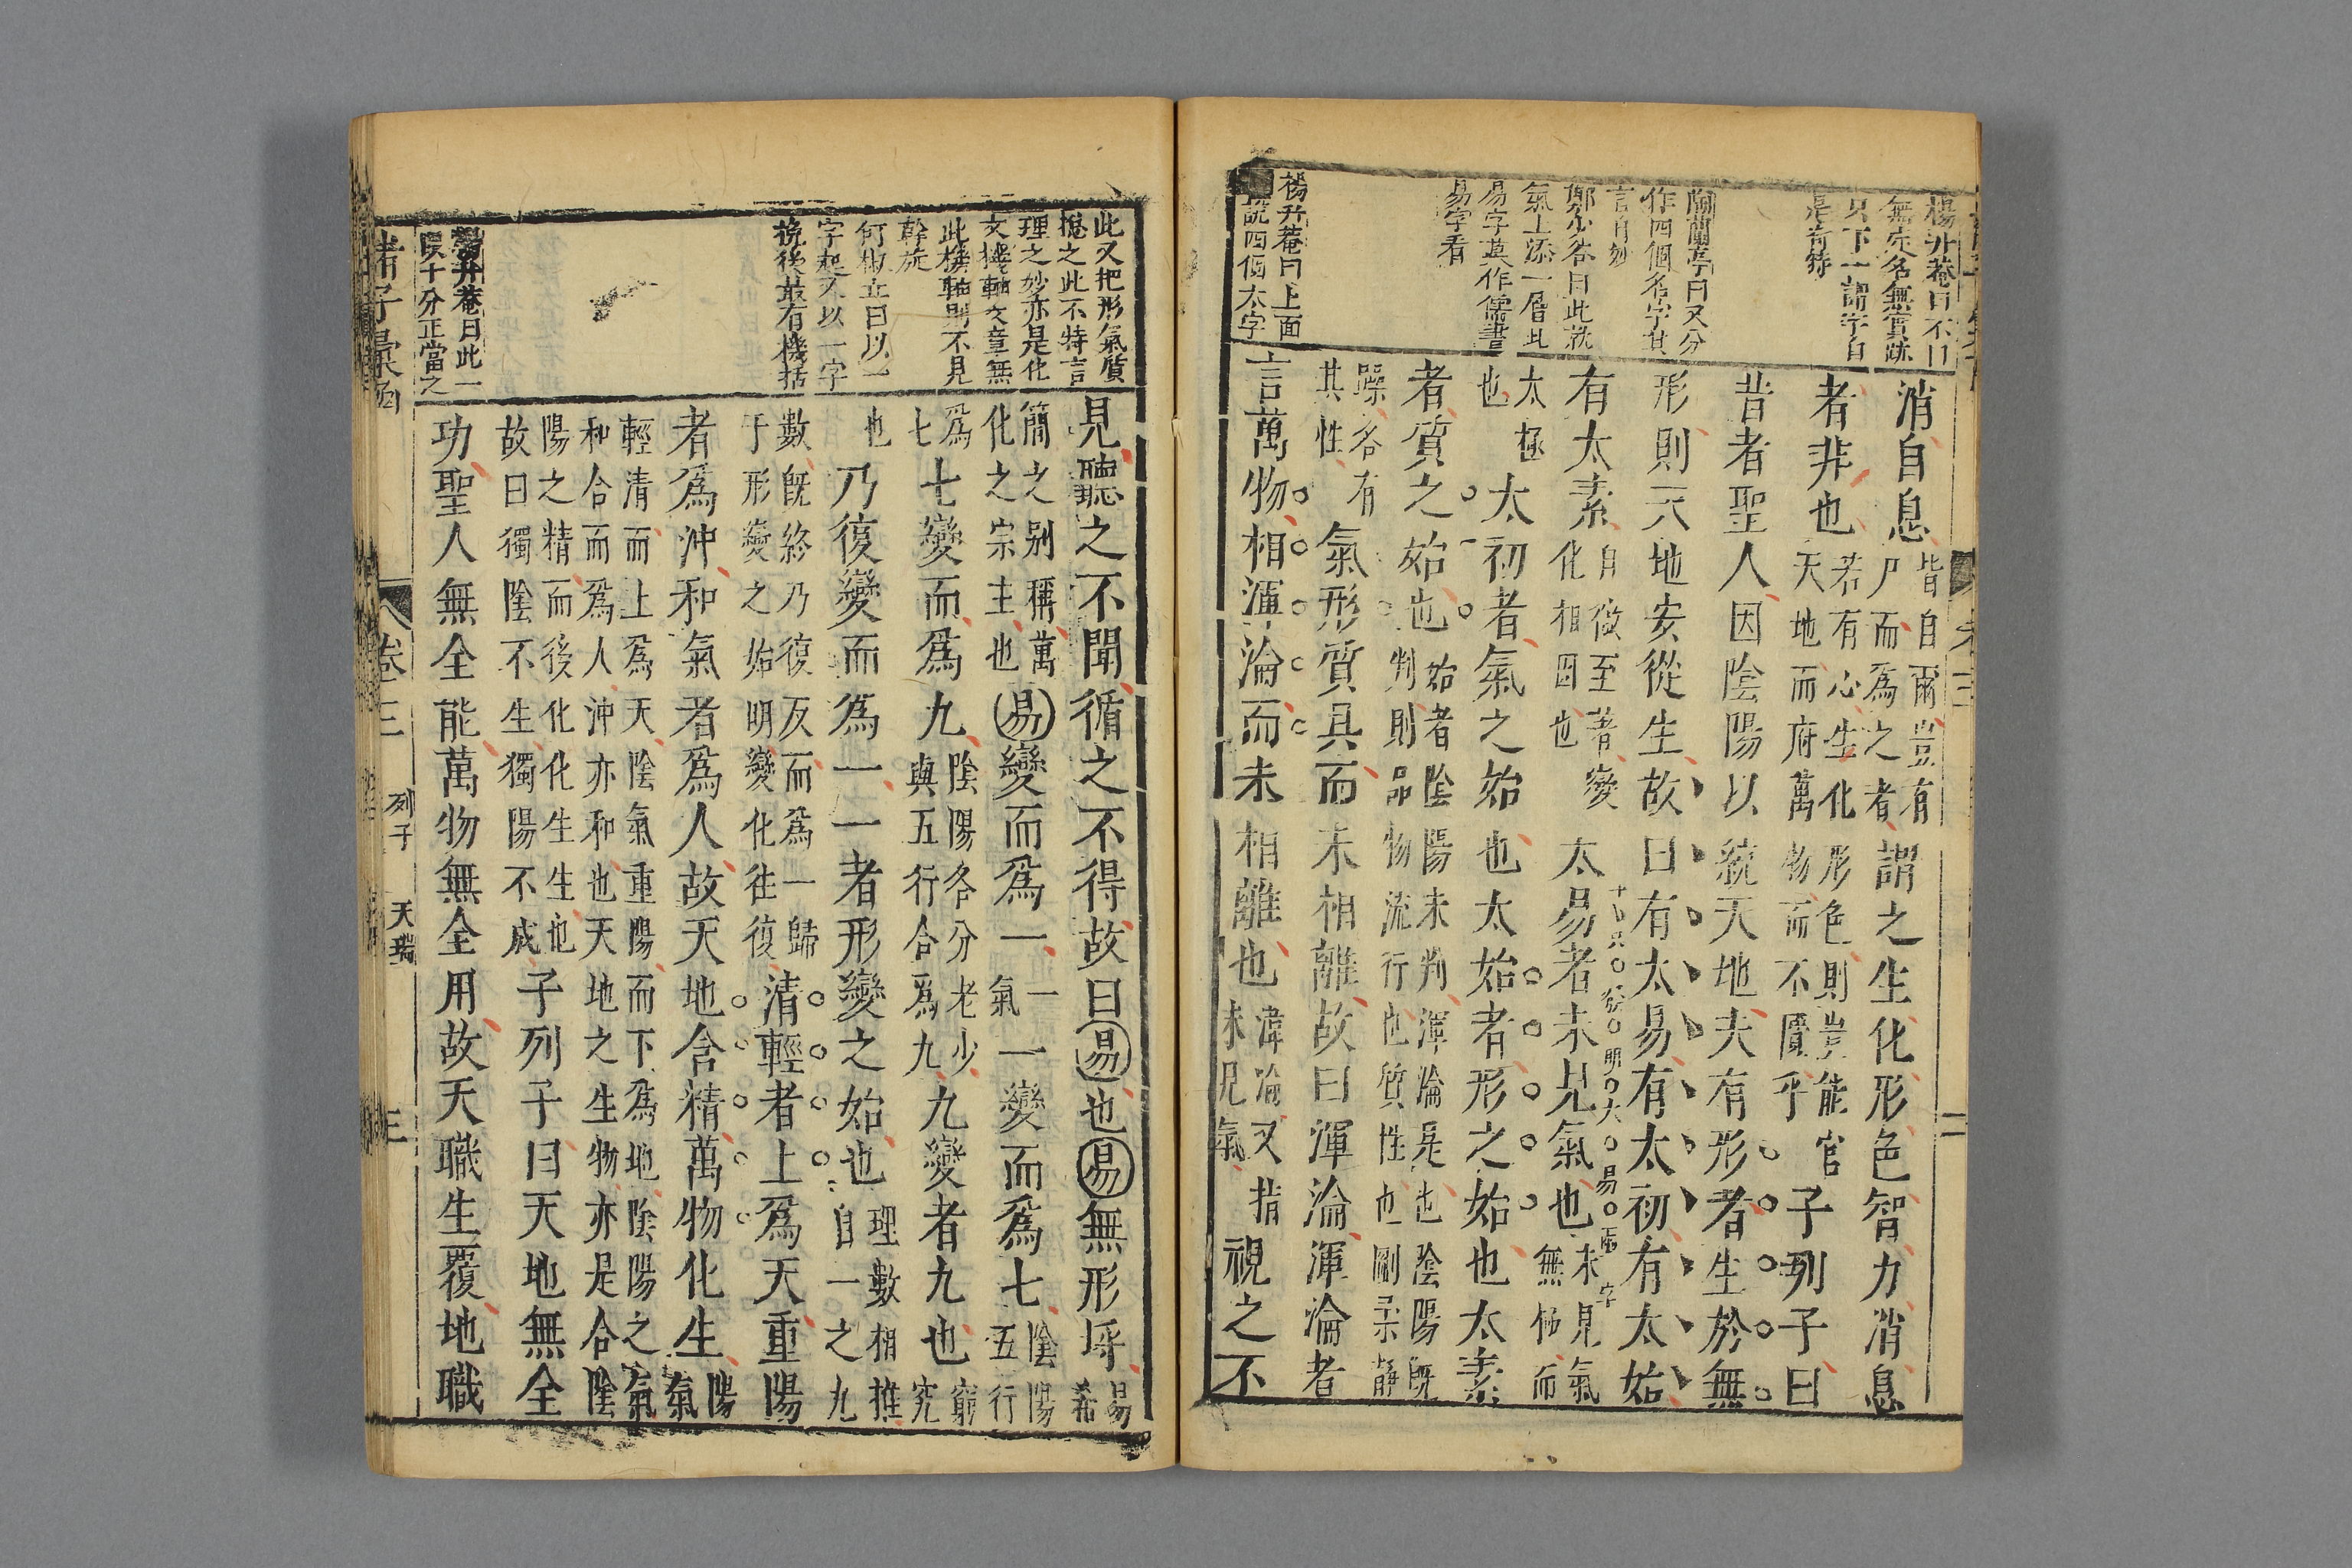 楊升菴曰不曰
無定名無實跡
只下一謂字自
是奇特
陶蘭亭曰又分
作四個名字其
言自妙
鄭少谷曰此就
氣上添一層此
易字莫作儒書
易字看
楊升菴曰上面
說四個太字
消自息
皆自爾豈有
尸而為之者
謂之生化形色智力消息
者非也
若有心生化形色則豈能官
天地而府萬物而不匱乎
子列子曰
昔者聖人因陰陽以統天地夫有形者生於無
形則天地安從生故曰有太易有太初有太始
有太素
自微至著變
化相因也
太易者未見氣也
未見氣
無極而
太極
也
太初者氣之始也太始者形之始也太素
者質之始也
始者陰陽未判渾淪是也陰陽既
判則品物流行也質性也剛柔靜
躁各有
其性
氣形質具而未相離故曰渾淪渾淪者
言萬物相渾淪而未相離也
渾淪又指
未見氣
視之不
此又把形氣質
捴之此不特言
理之妙亦是化
文機軸文章無
此機軸則不見
斡旋
何椒丘曰以一
字起又以一字
挽後最有機括
楊升菴曰此一
叚十分正當之
見聽之不聞循之不得故曰易也易無形埒
易
希
簡之別稱萬
化之宗主也
易變而為一
一
氣
一變而為七
陰陽
五行
為
七
七變而為九
陰陽各分老少
與五行合為九
九變者九也
窮
究
也
乃復變而為一一者形變之始也
理數相推
自一之九
數既終乃復反而為一歸
于形變之始明變化往復
清輕者上為天重陽
者為沖和氣者為人故天地含精萬物化生
陽
氣
輕清而上為天陰氣重陽而下為地陰陽之氣
和合而為人沖亦和也天地之生物亦是合陰
陽之精而後化化生生也
故曰獨陰不生獨陽不成
子列子曰天地無全
功聖人無全能萬物無全用故天職生覆地職
諸子彙函
卷三
列子
天瑞
三